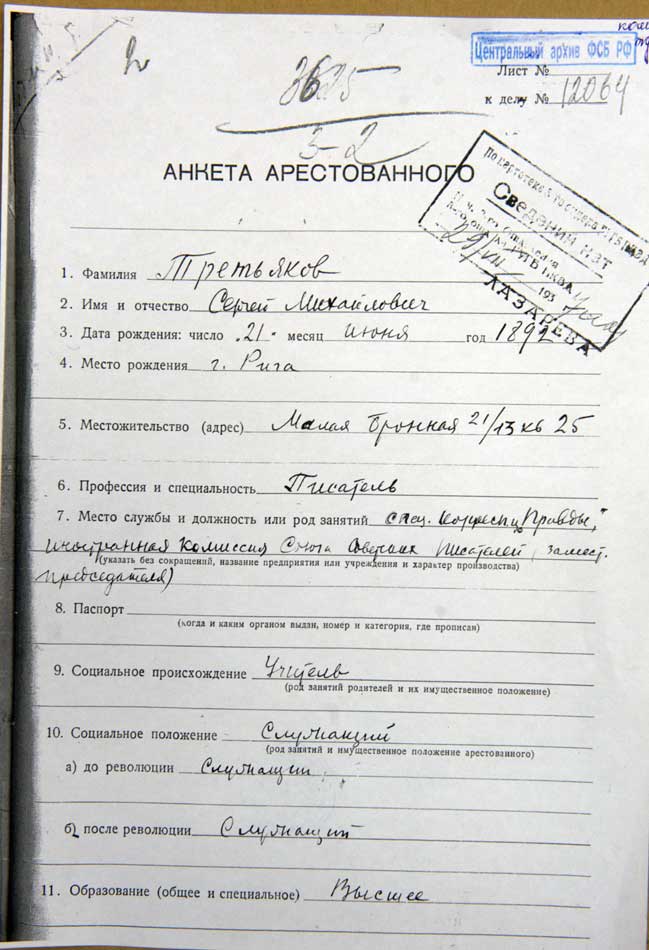 Центральный архив ФСБ РФ
Лист №
к делу № 12064
3-2
АНКЕТА АРЕСТОВАННОГО
Сведений нет
193
ЛАЗАРЕВА
1. Фамилия Третьяков
2. Имя и отчество Сергей Михайлович
3. Дата рождения: число 21. месяц июня год 1892
4. Место рождения г. Рига
5. Местожительство (адрес) Малая Бронная 21/13 кв 25
6. Профессия и специальность Писатель
7. Место службы и должность или род занятий спец. корресп. „Правды,"
иностранная комиссия Союза Советских Писателей, замест.
(указать без сокращений, название предприятия или учреждения и характер производства)
председателя)
8. Паспорт
(когда и каким органом выдан, номер и категория, где прописан)
9. Социальное происхождение Учитель
(род занятий родителей и их имущественное положение)
10. Социальное положение Служащий
(род занятий и имущественное положение арестованного)
а) до революции Служащий
б) после революции Служащий
11. Образование (общее и специальное) Высшее